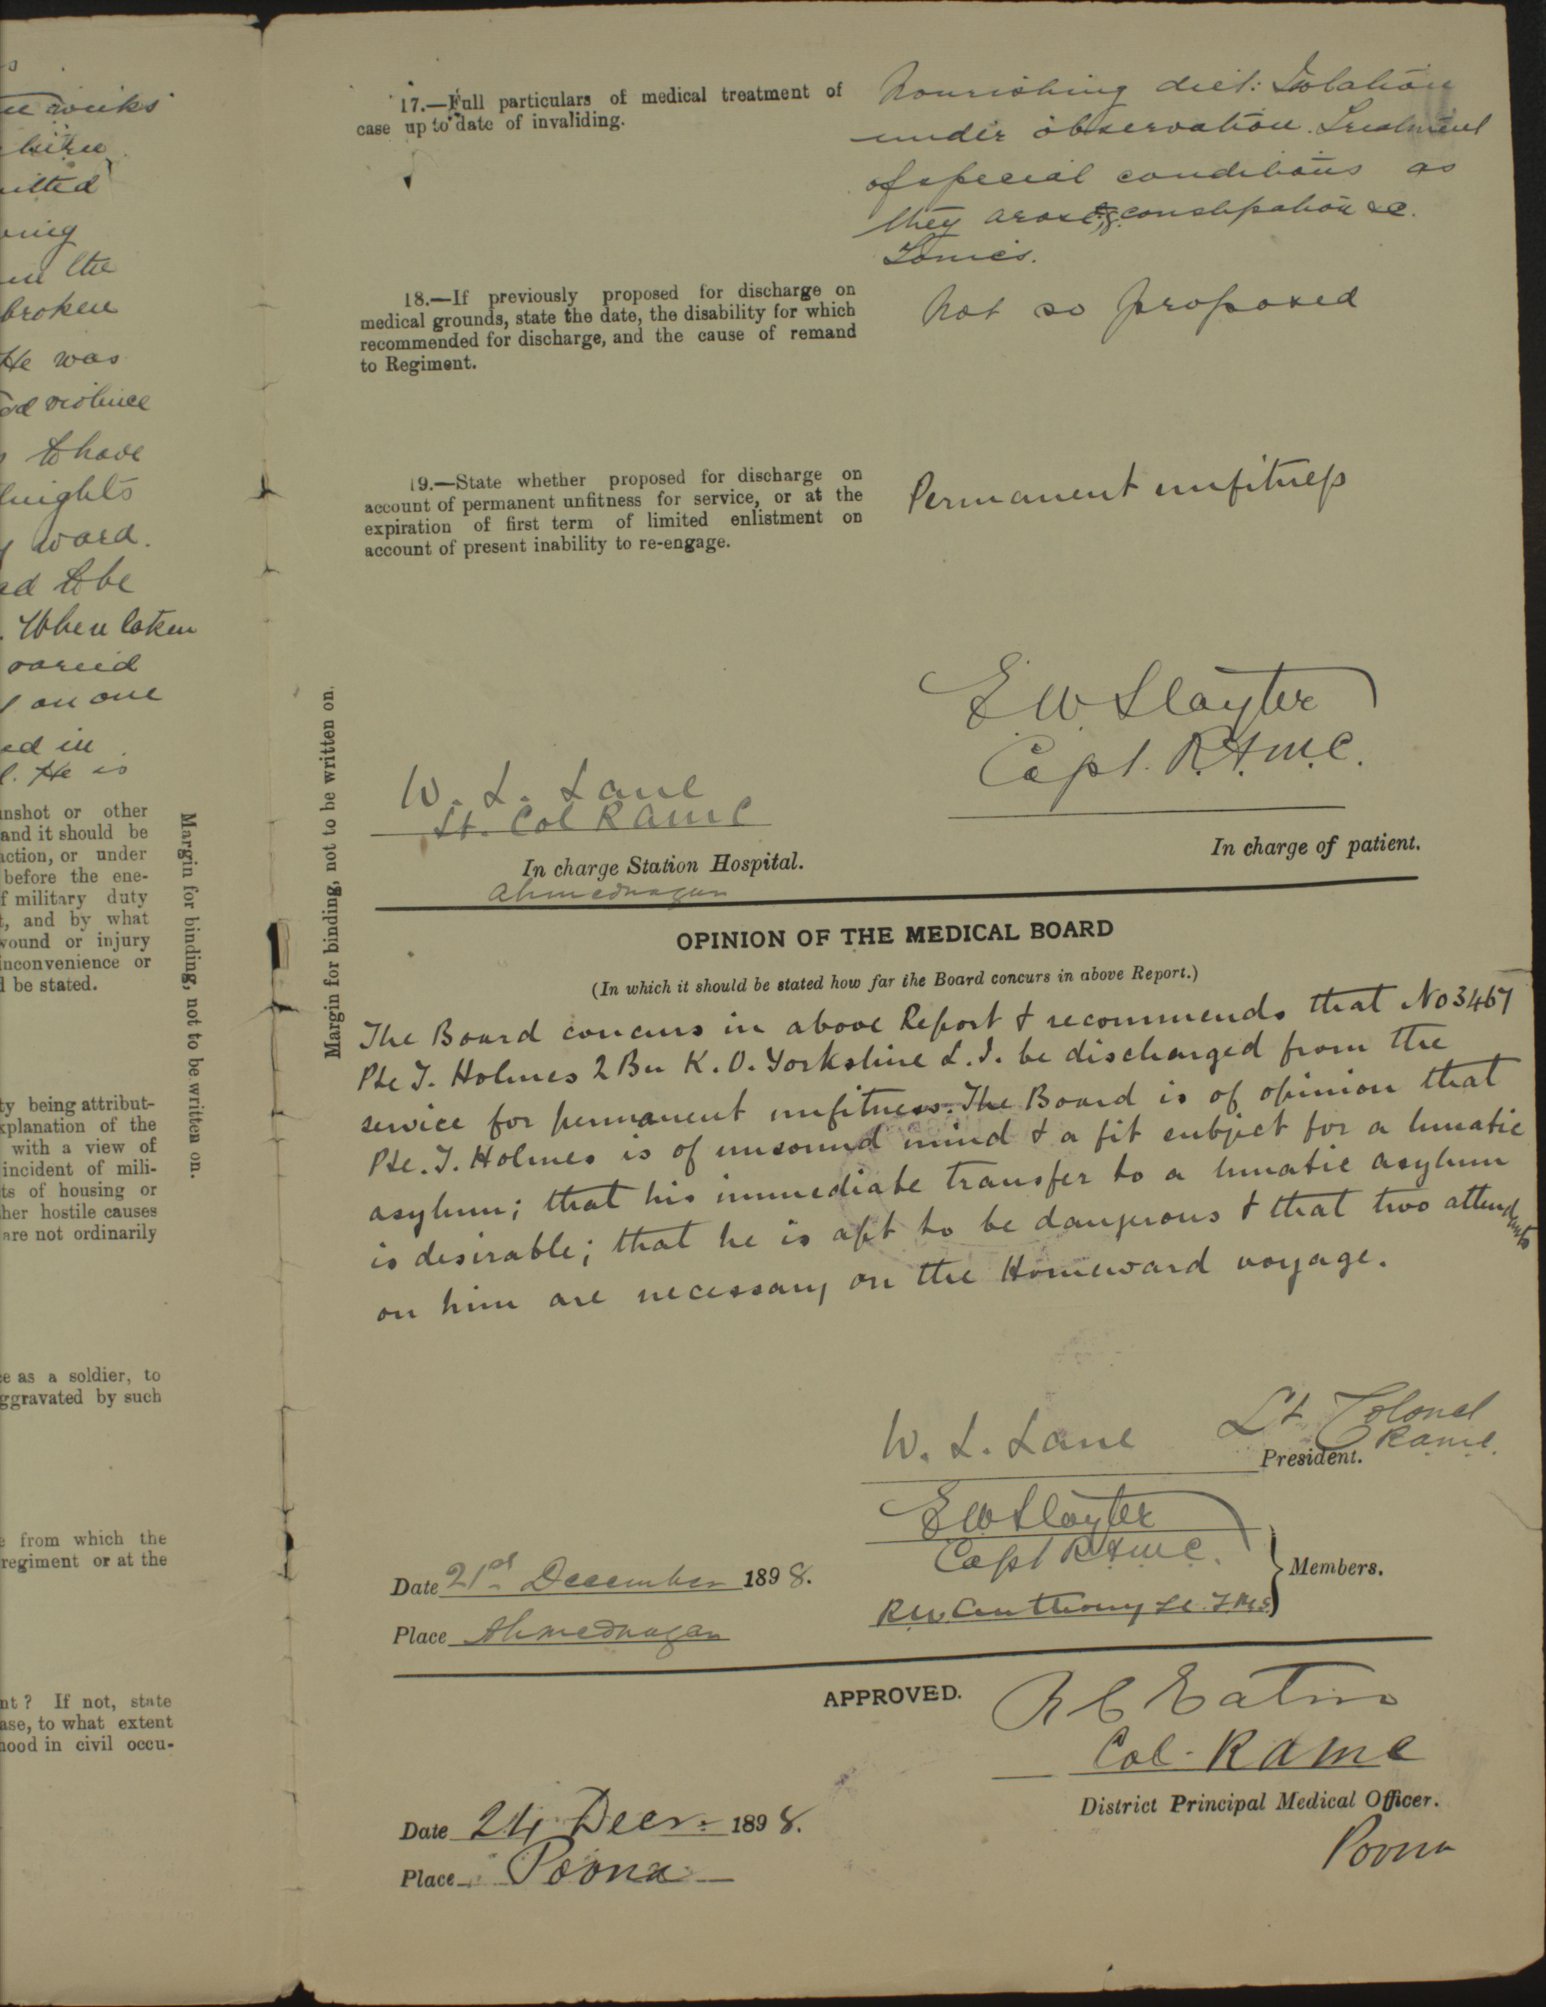 weeks
hire
itted
ring
in the
broken
He was
violence
to have
knights
ward.
ed to be
. When taken
varied
on one
ed in
l. He is
nshot or other
and it should be
action, or under
before the ene-
f military duty
t, and by what
wound or injury
inconvenience or
d be stated.
Margin for binding, not to be written on.
ty being attribut-
xplanation of the
with a view of
incident of mili-
ts of housing or
her hostile causes
are not ordinarily
e as a soldier, to
ggravated by such
e from which the
regiment or at the
nt? If not, state
ase, to what extent
hood in civil occu-
Margin for binding, not to be written on.
17.—Full particulars of medical treatment of
case up to date of invaliding.
Nourishing diet: Isolation
under observation. Treatment
of special conditions as
they arose, e.g. constipation &c.
Tonics.
18.—If previously proposed for discharge on
medical grounds, state the date, the disability for which
recommended for discharge, and the cause of remand
to Regiment.
Not so proposed
19.—State whether proposed for discharge on
account of permanent unfitness for service, or at the
expiration of first term of limited enlistment on
account of present inability to re-engage.
Permanent unfitness
E W Slayter
Capt. R.A.M.C.
In charge of patient.
W. L. Lane
Lt. Col RAMC
In charge Station Hospital.
Ahmednagar
OPINION OF THE MEDICAL BOARD
(In which it should be stated how far the Board concurs in above Report.)
The Board concurs in above Report & recommends that No 3467
Pte T. Holmes 2 Bn K. O. Yorkshire L. I. be discharged from the
service for permanent unfitness. The Board is of opinion that
Pte. T. Holmes is of unsound mind & a fit subject for a lunatic
asylum; that his immediate transfer to a lunatic asylum
is desirable; that he is apt to be dangerous & that two attendants
on him are necessary on the Homeward voyage.
W. L. Lane Lt Colonel
RAMC.
President.
E W Slayter
Capt RAMC.
R W Anthony Lt. I.M.S.
Members.
Date 21st December 1898.
Place Ahmednagar
APPROVED.
Eaton
Col. RAMC
District Principal Medical Officer.
Poona
Date 24 Decr. 1898.
Place Poona